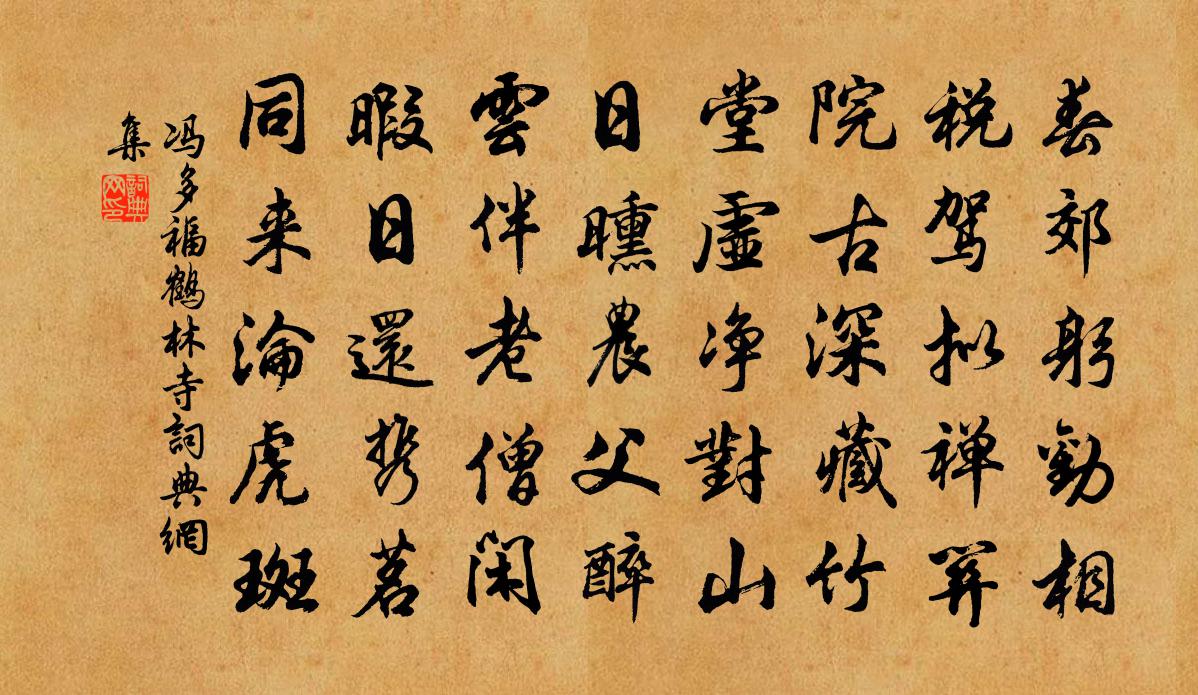 春郊躬勸相
税驾拟禅關
院古深藏竹
堂虛净對山
日曛農父醉
雲伴老僧闲
暇日還携茗
同来淪虎斑
冯多福鹤林寺詞典網
集
詞典网印